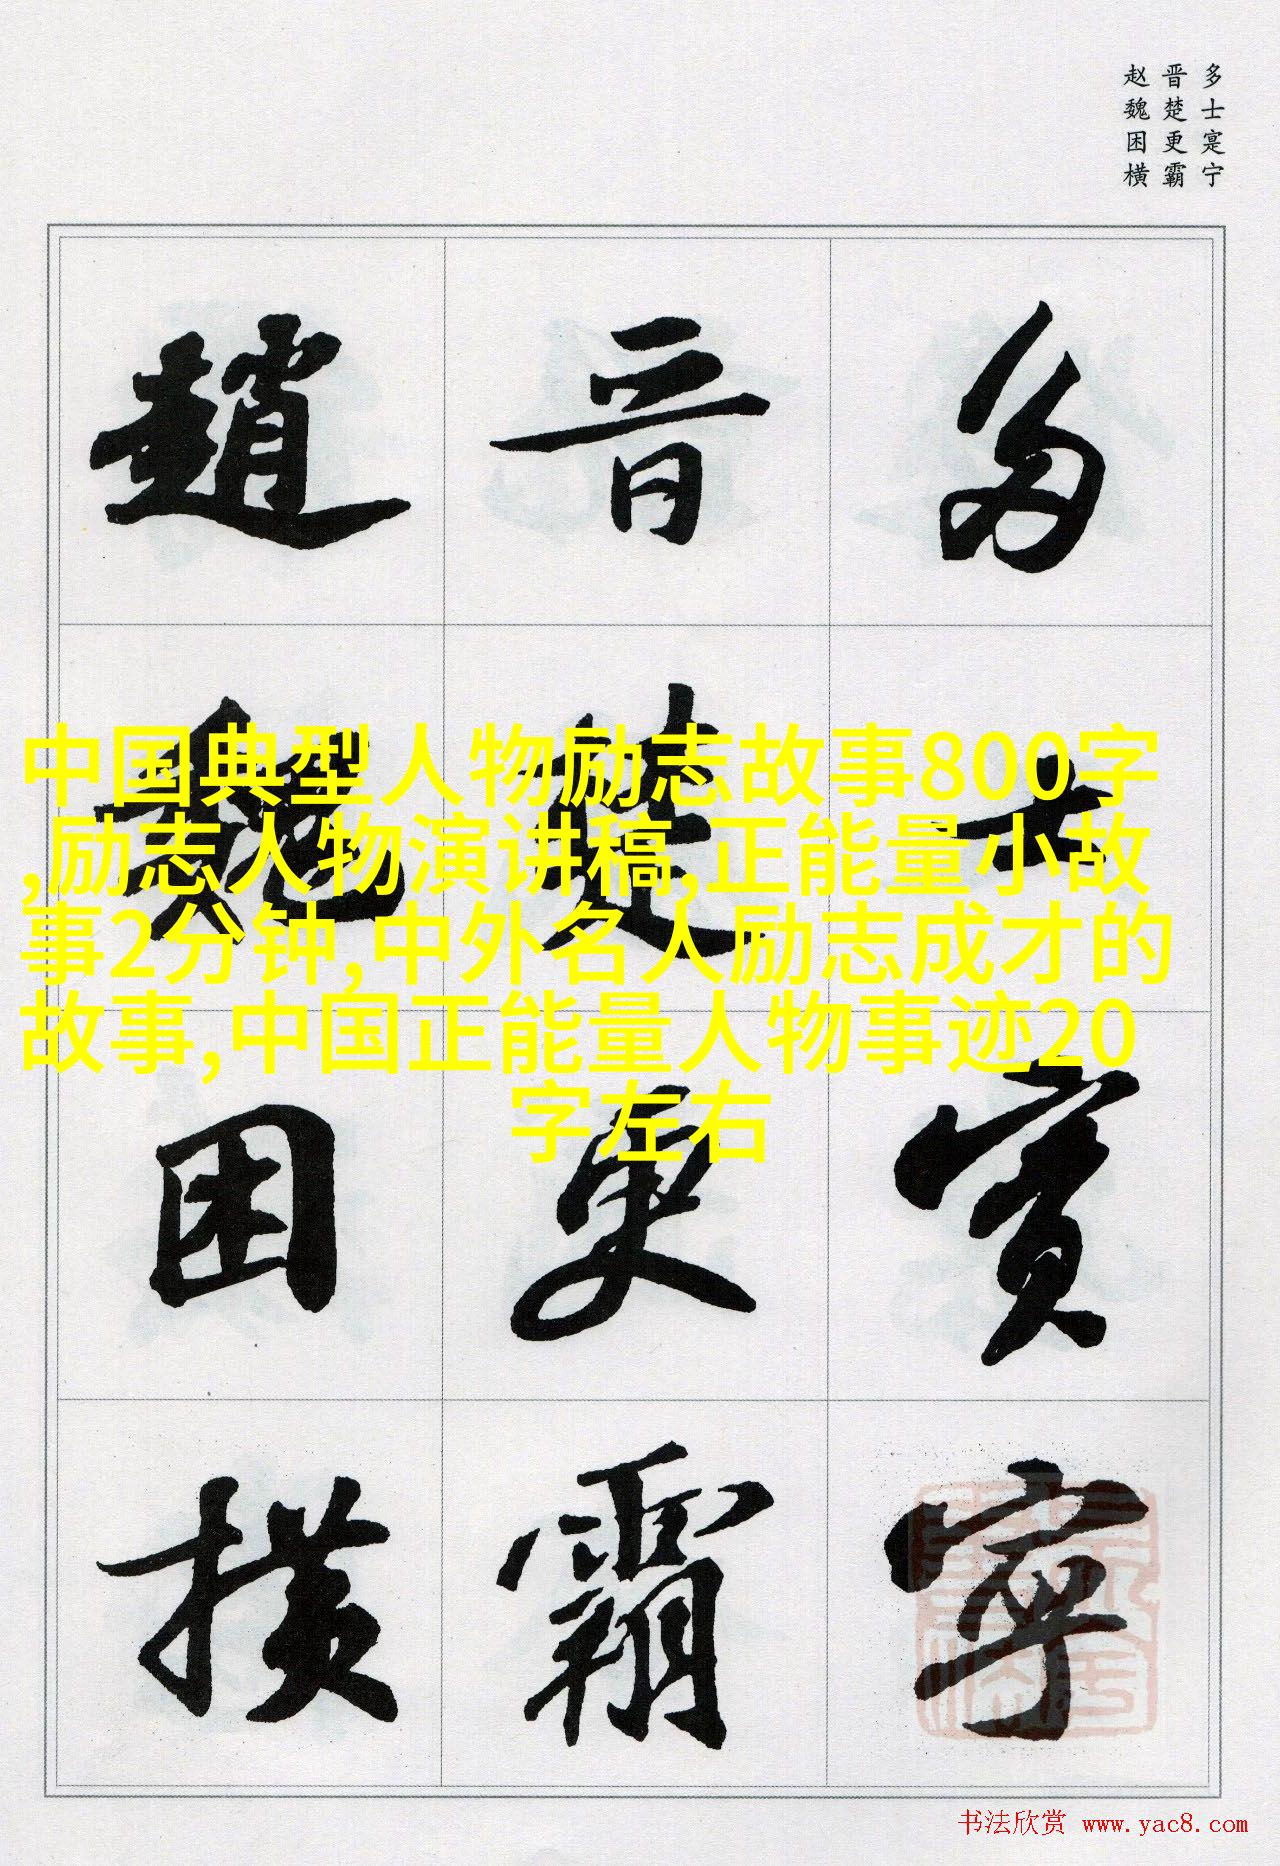 多士寔宁
晋楚更霸
赵魏困横
多士寔宁
晋楚更霸
趙魏困横
中国典型人物励志故事800字
,励志人物演讲稿,正能量小故
事2分钟,中外名人励志成才的
故事,中国正能量人物事迹20
字左右
书法欣赏 www.yac8.com